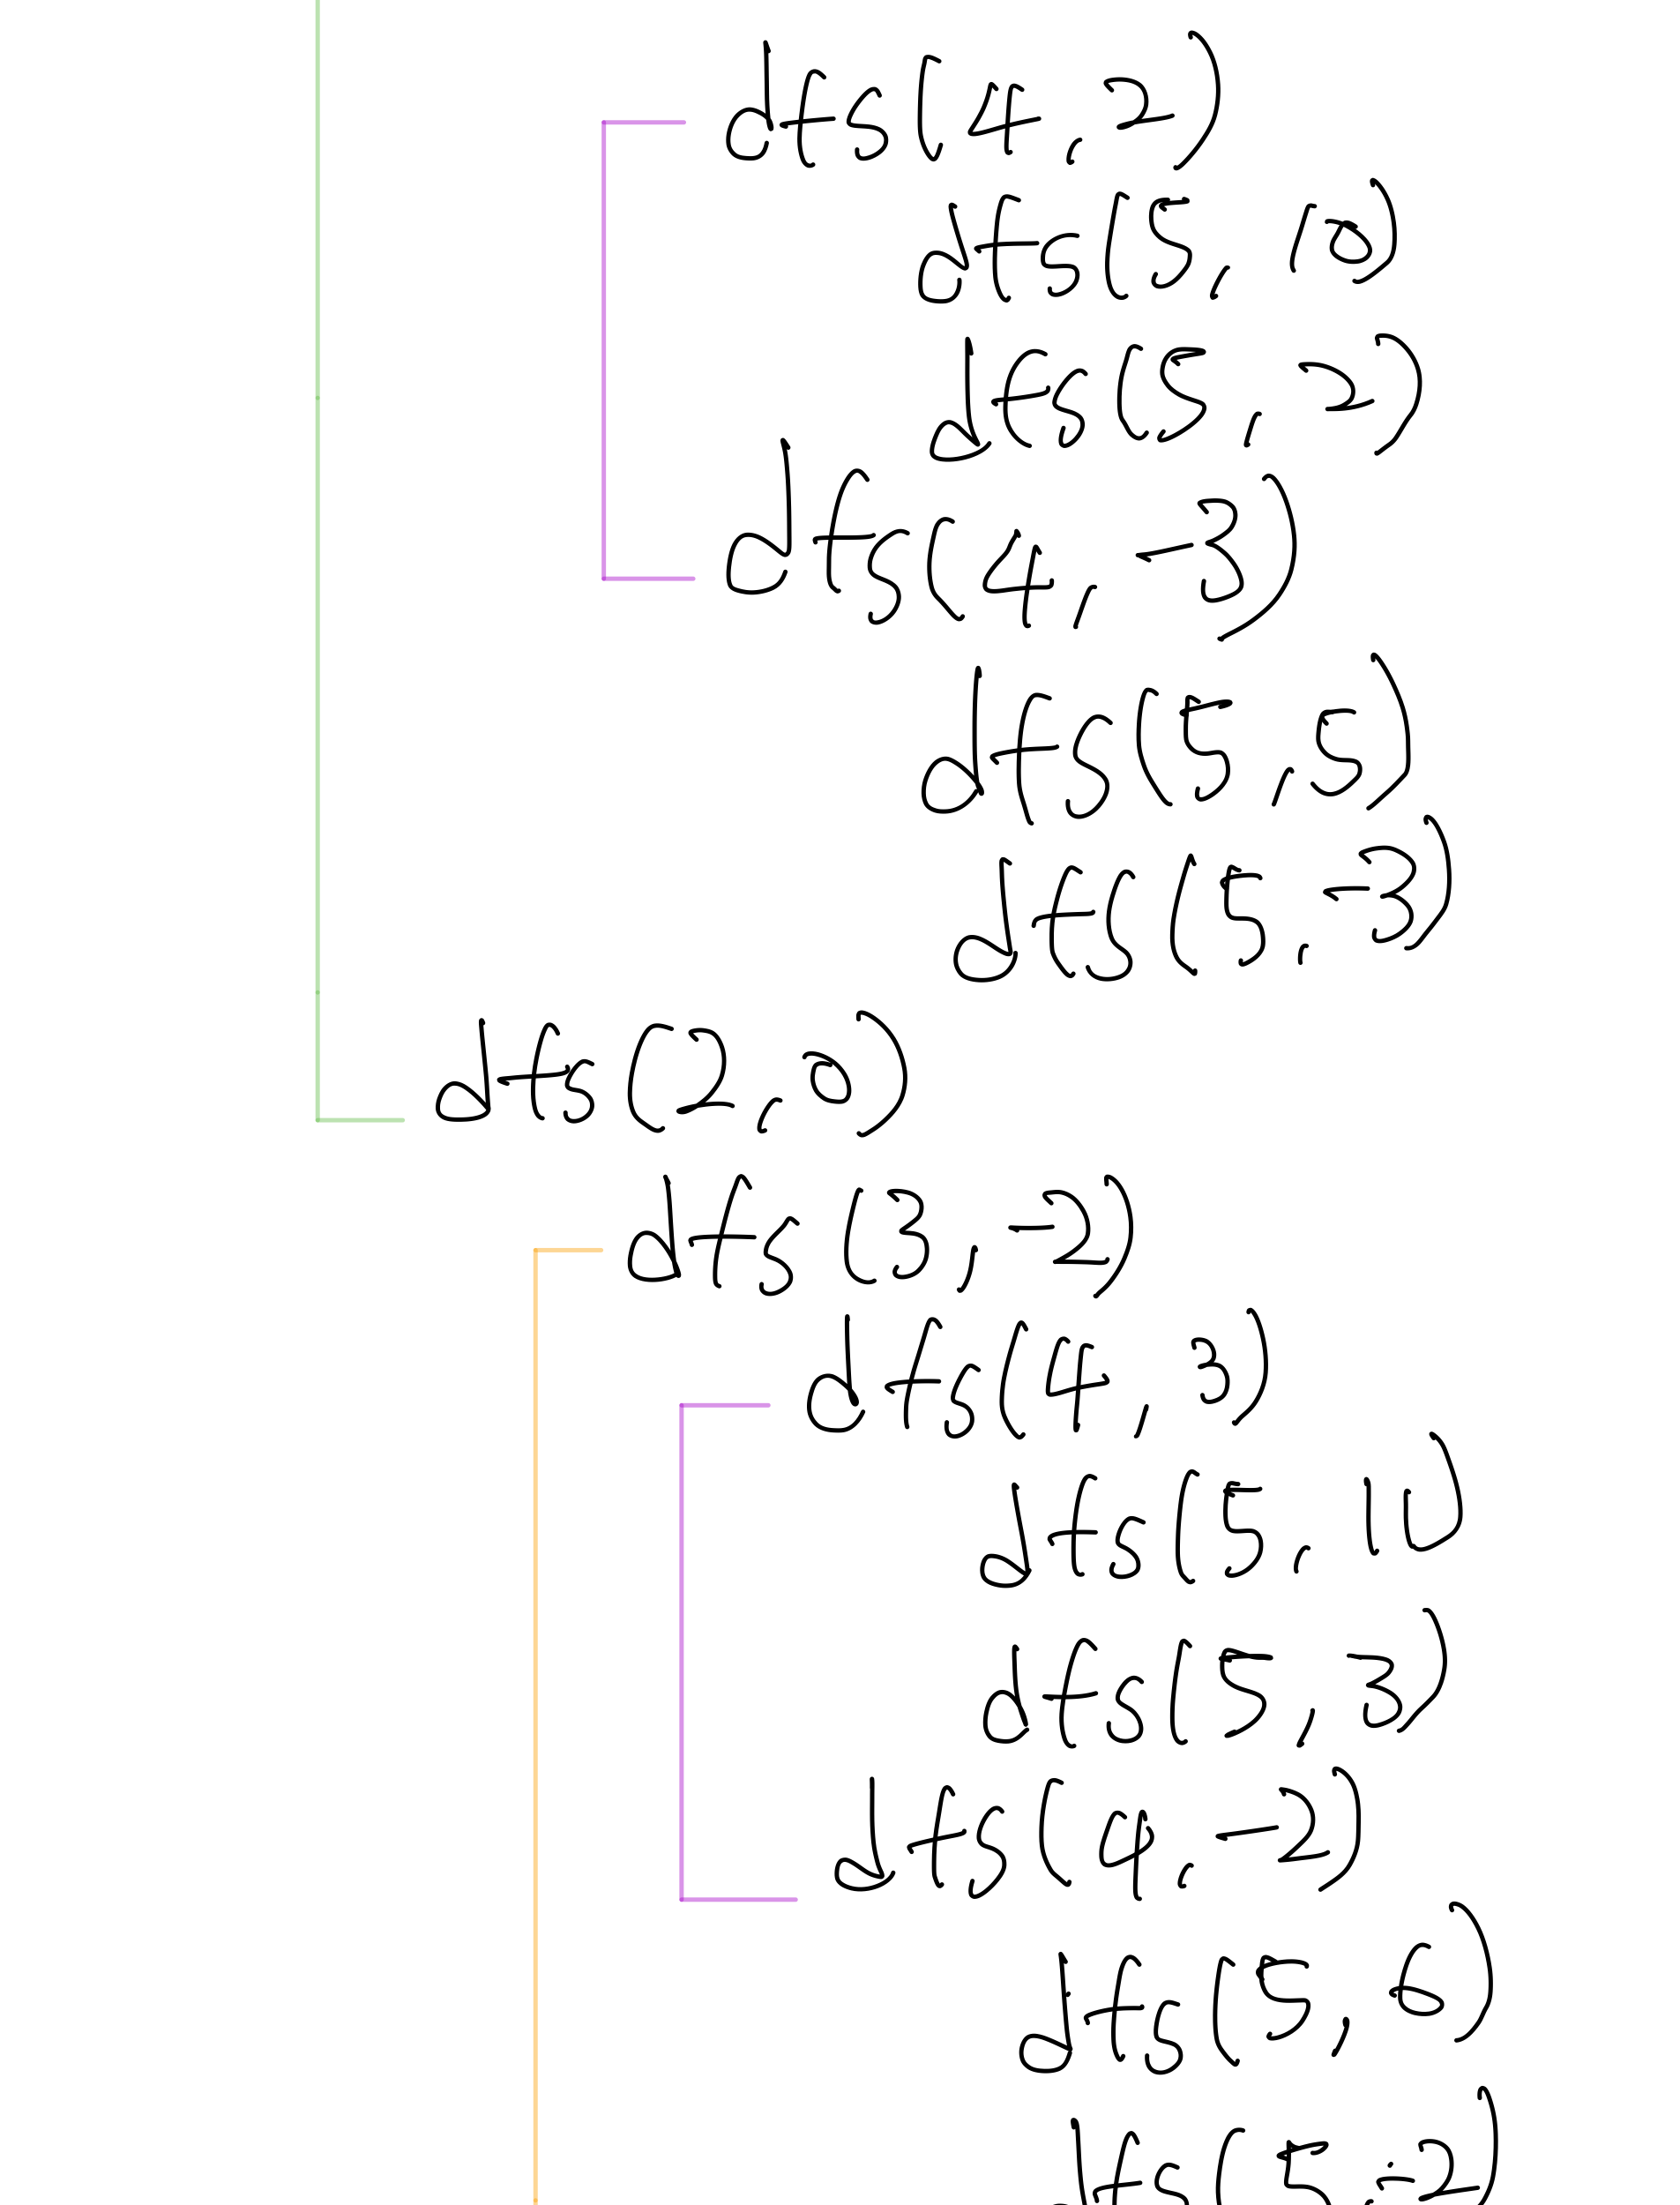 dfs(4,2)
dfs(5,10)
dfs(5,2)
dfs(4,-3)
dfs(5,5)
dfs(5,-3)
dfs(2,0)
dfs(3,-2)
dfs(4,3)
dfs(5,
dfs(5,3)
dfs(4,-2)
dfs(5,6)
dfs(5,-2)